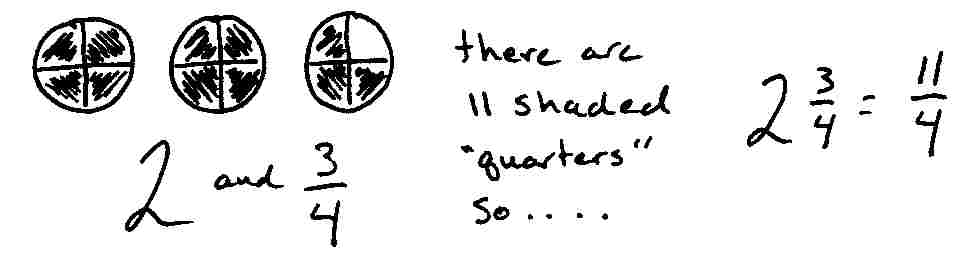 2 and 3/4
there are
11 shaded
"quarters"
so....
2 3/4 = 11/4